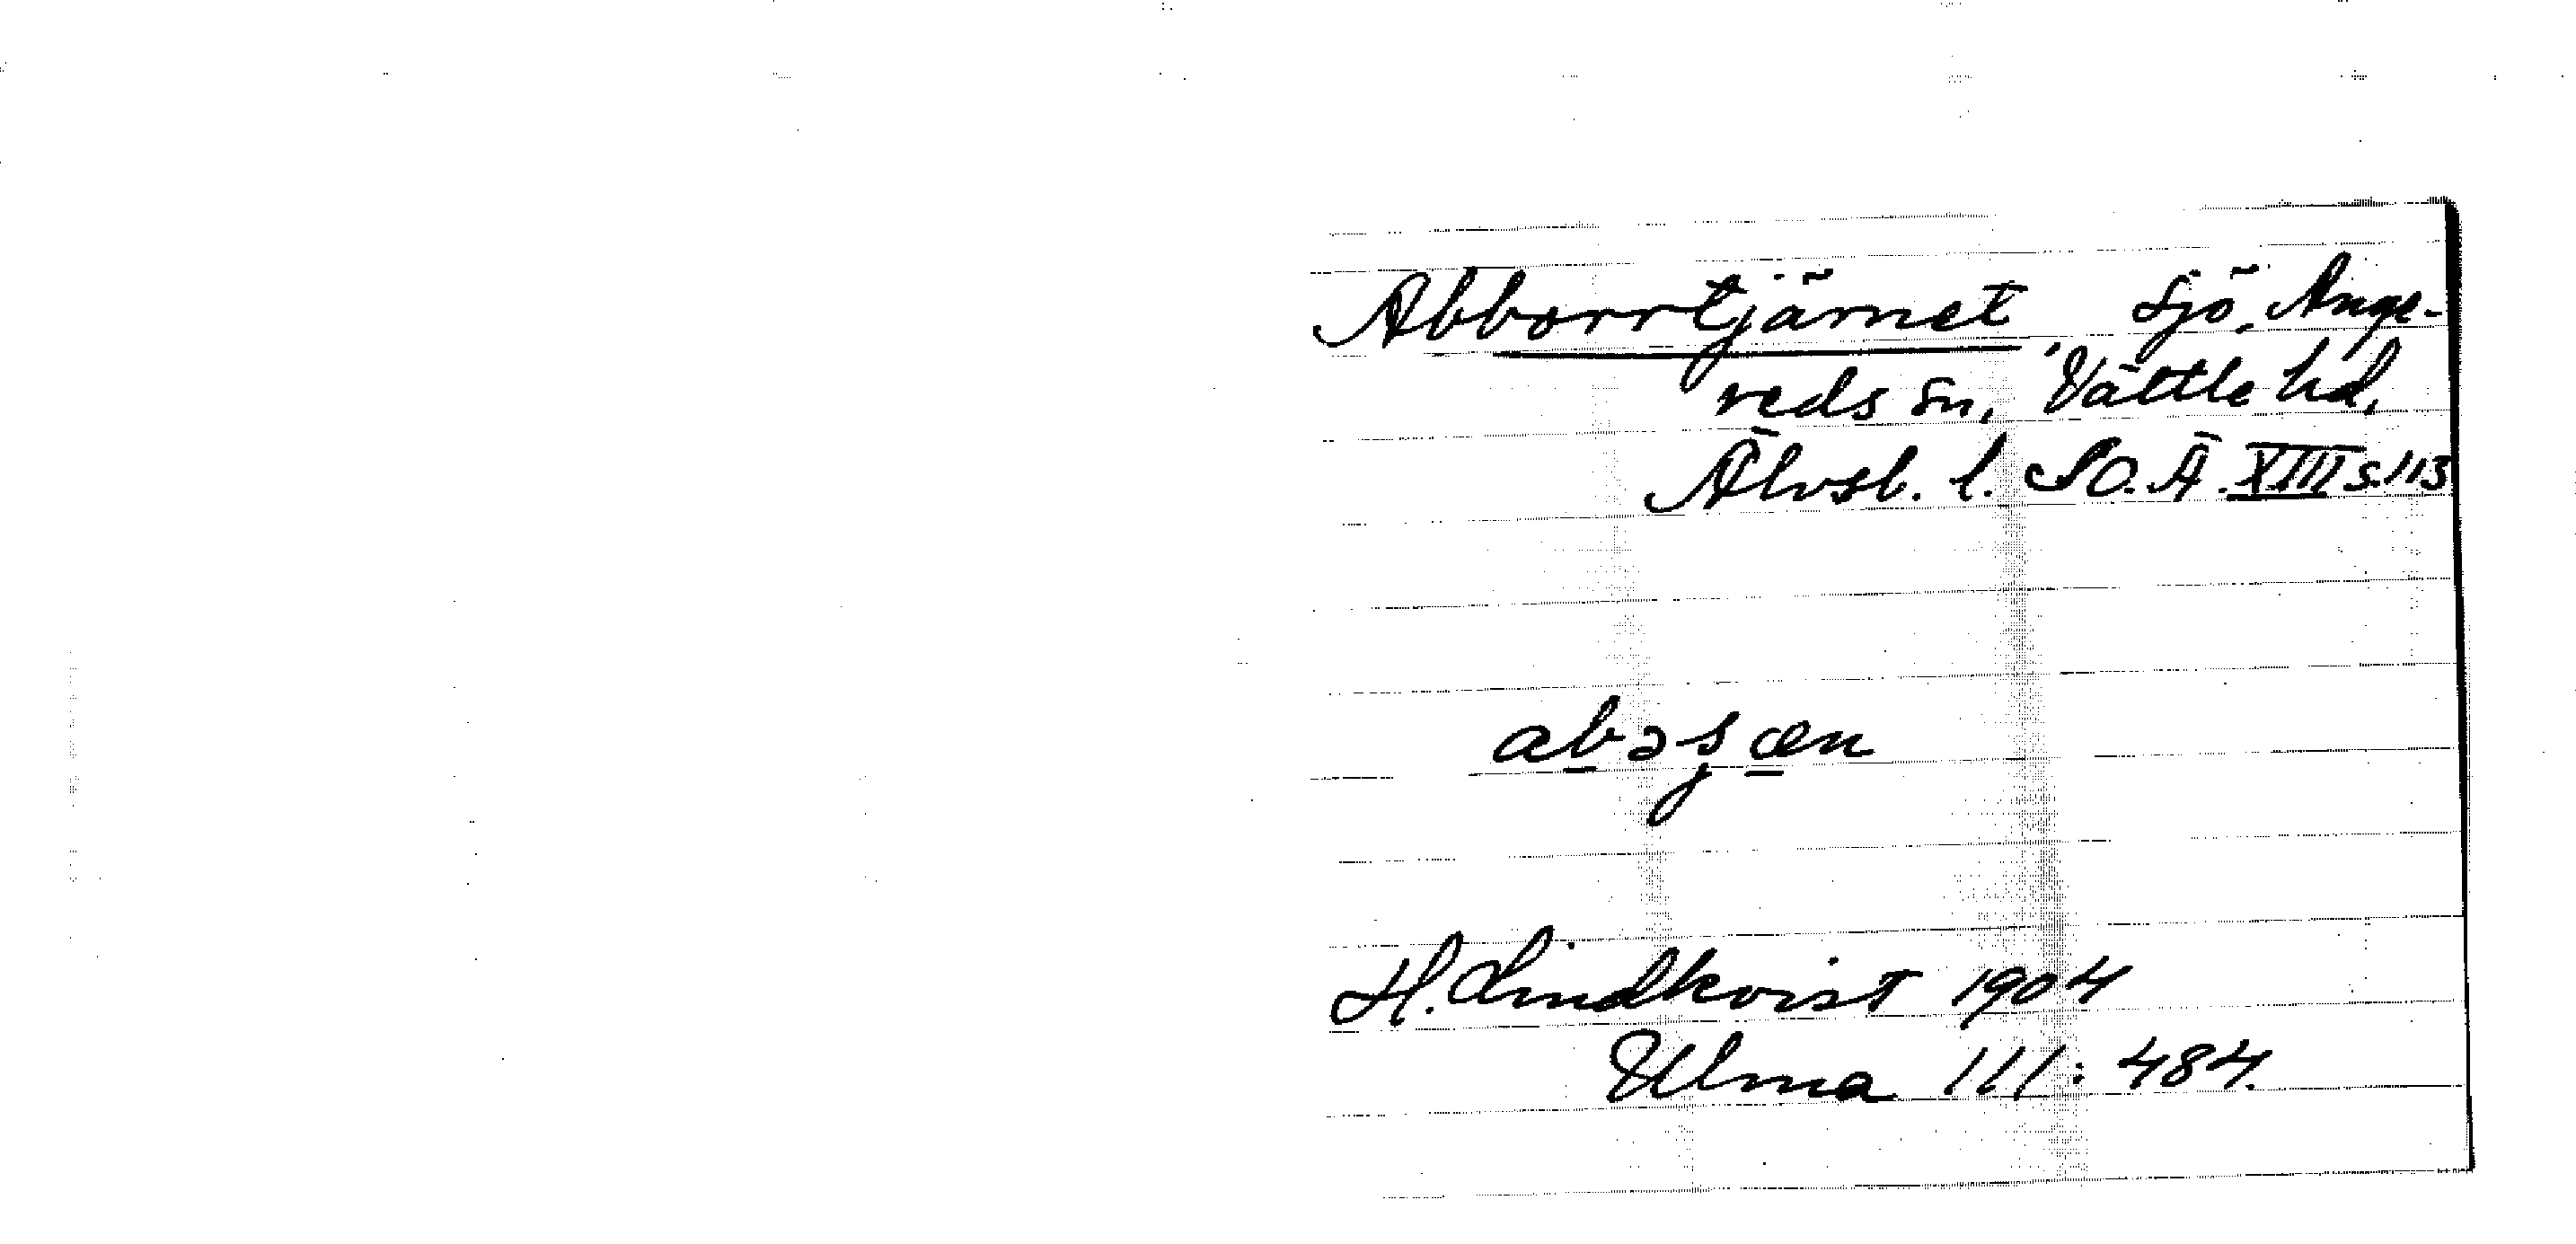 Abborrtjärnet, sjö, Ange-
reds sn, Vättle hd,
Älvsb. l. S.O.Ä. XIII s. 113
H. Lindkvist 1904
Ulma 111: 484.